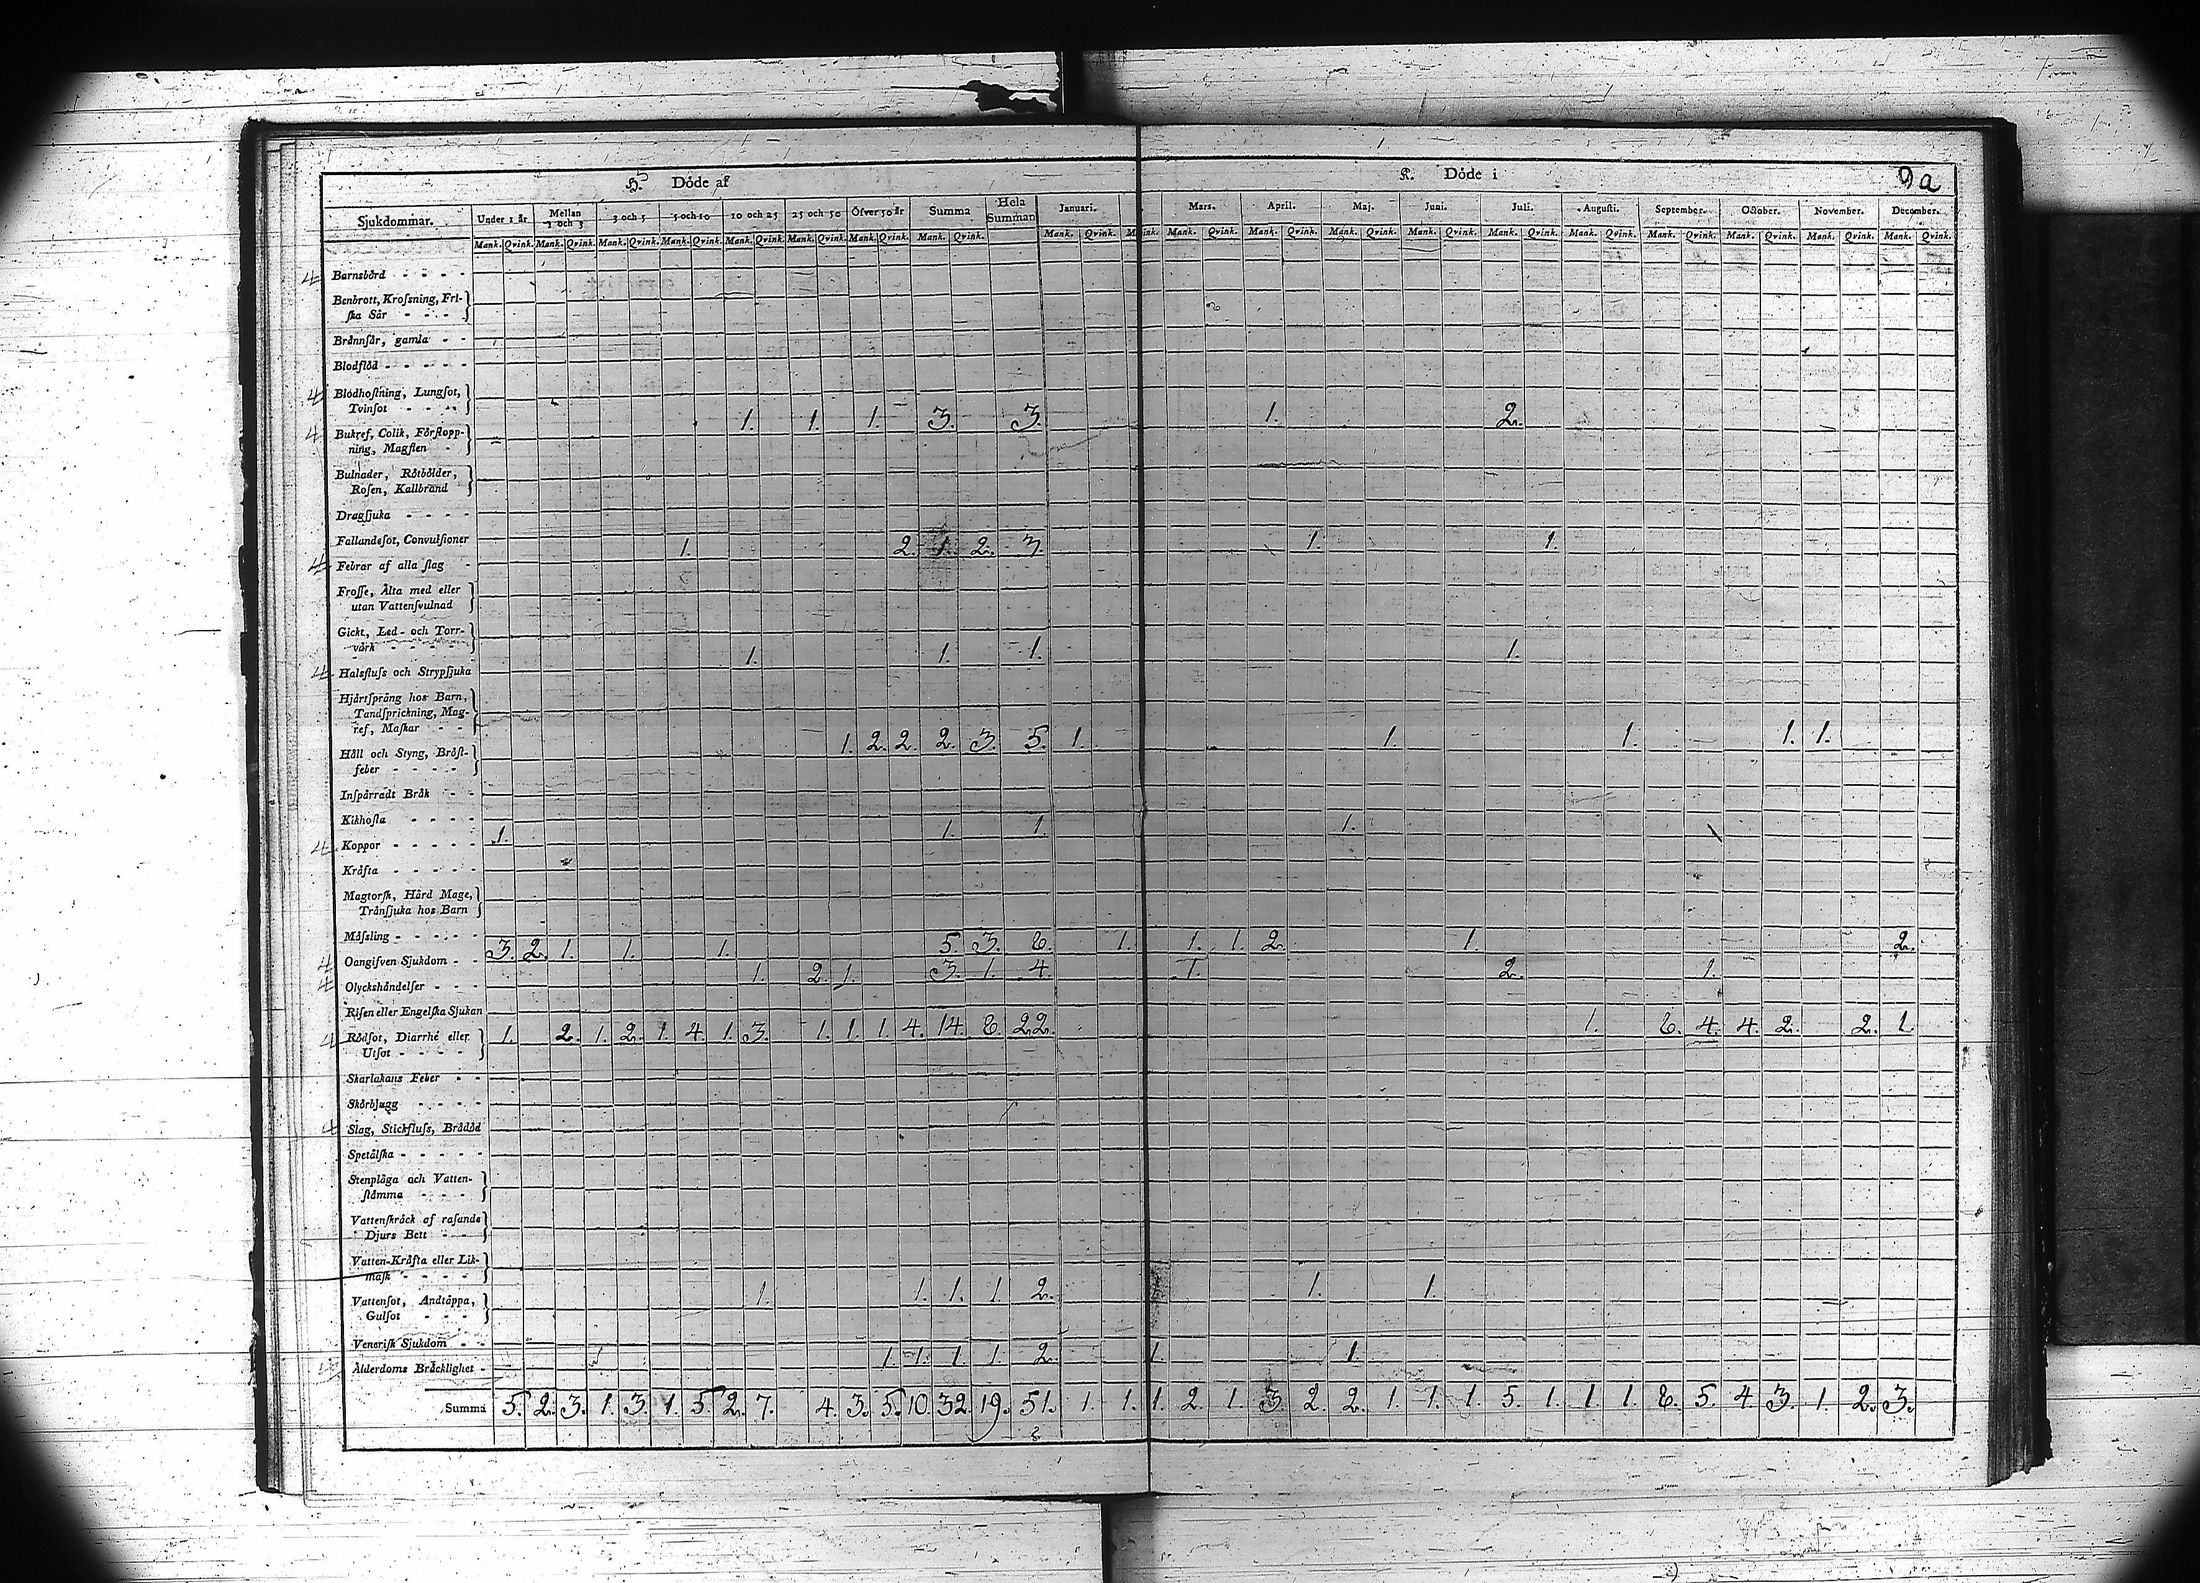 H. Döde af K. Döde i 9a
Sjukdommar. Under 1 år Mellan 1 och 3 3 och 5 5 och 10 10 och 25 25 och 50 Öfver 50 år Summa Hela Summan Januari. Mars. April. Maj. Juni. Juli. Augusti. September. October. November. December.
Mank. Qvink. Mank. Qvink. Mank. Qvink. Mank. Qvink. Mank. Qvink. Mank. Qvink. Mank. Qvink. Mank. Qvink. Mank. Qvink. Mank. Qvink. Mank. Qvink. Mank. Qvink. Mank. Qvink. Mank. Qvink. Mank. Qvink. Mank. Qvink. Mank. Qvink. Mank. Qvink. Mank. Qvink.
Barnsbörd - - - -
Benbrott, Krosſning, Fri-
ſka Sår - - - -
Brännſår, gamla - -
Blodflöd - - - - -
Blodhoſtning, Lungſot,
Tvinſot - - -
1. 1. 1. 3. 3. 1. 2.
Bukref, Colik, Förſtopp-
ning, Magſten -
Bulnader, Rötbölder,
Roſen, Kallbrand
Dragſjuka - - - -
Fallandeſot, Convulſioner
1. 2. 1. 2. 3. 1. 1.
Febrar af alla ſlag -
Froſſe, Älta med eller
utan Vattenſvulnad
Gickt, Led- och Torr-
värk - - - - -
1. 1. 1. 1.
Halsfluſs och Strypſjuka
Hjärtſpräng hos Barn,
Tandſprickning, Mag-
ref, Maſkar - -
1. 2. 2. 2. 3. 5. 1. 1. 1. 1. 1.
Håll och Styng, Bröſt-
feber - - - - -
Inſpärradt Bråk - -
Kikhoſta - - - -
1. 1. 1. 1.
Koppor - - - - -
Kräfta - - - - -
Magtorſk, Hård Mage,
Tränſjuka hos Barn
Måſsling - - - - -
3. 2. 1. 1. 1. 5. 3. 8. 1. 1. 1. 2. 1. 2.
Oangifven Sjukdom - -
1. 2. 1. 3. 1. 4. 1. 2. 1.
Olyckshändelſer - - -
Riſen eller Engelſka Sjukan
1. 2. 1. 2. 1. 4. 1. 3. 1. 1. 1. 4. 14. 8. 22. 1. 8. 4. 4. 2. 2. 1.
Rödſot, Diarrhé eller
Utſot - - - -
Skarlakans Feber - -
Skörbjugg - - - -
Slag, Stickfluſs, Brådöd
Spetälſka - - - - -
Stenplåga och Vatten-
ſtämma - - -
Vattenſkräck af raſande
Djurs Bett - -
Vatten-Kräfta eller Lik-
maſk - - - -
1. 1. 1. 1. 2. 1. 1.
Vattenſot, Andtäppa,
Gulſot - - -
Veneriſk Sjukdom - -
1. 1. 1. 1. 2. 1. 1.
Ålderdoms Bräcklighet -
Summa 5. 2. 3. 1. 3. 1. 5. 2. 7. 4. 3. 5. 10. 32. 19. 51. 1. 1. 1. 2. 1. 3. 2. 2. 1. 1. 1. 5. 1. 1. 1. 8. 5. 4. 3. 1. 2. 3.